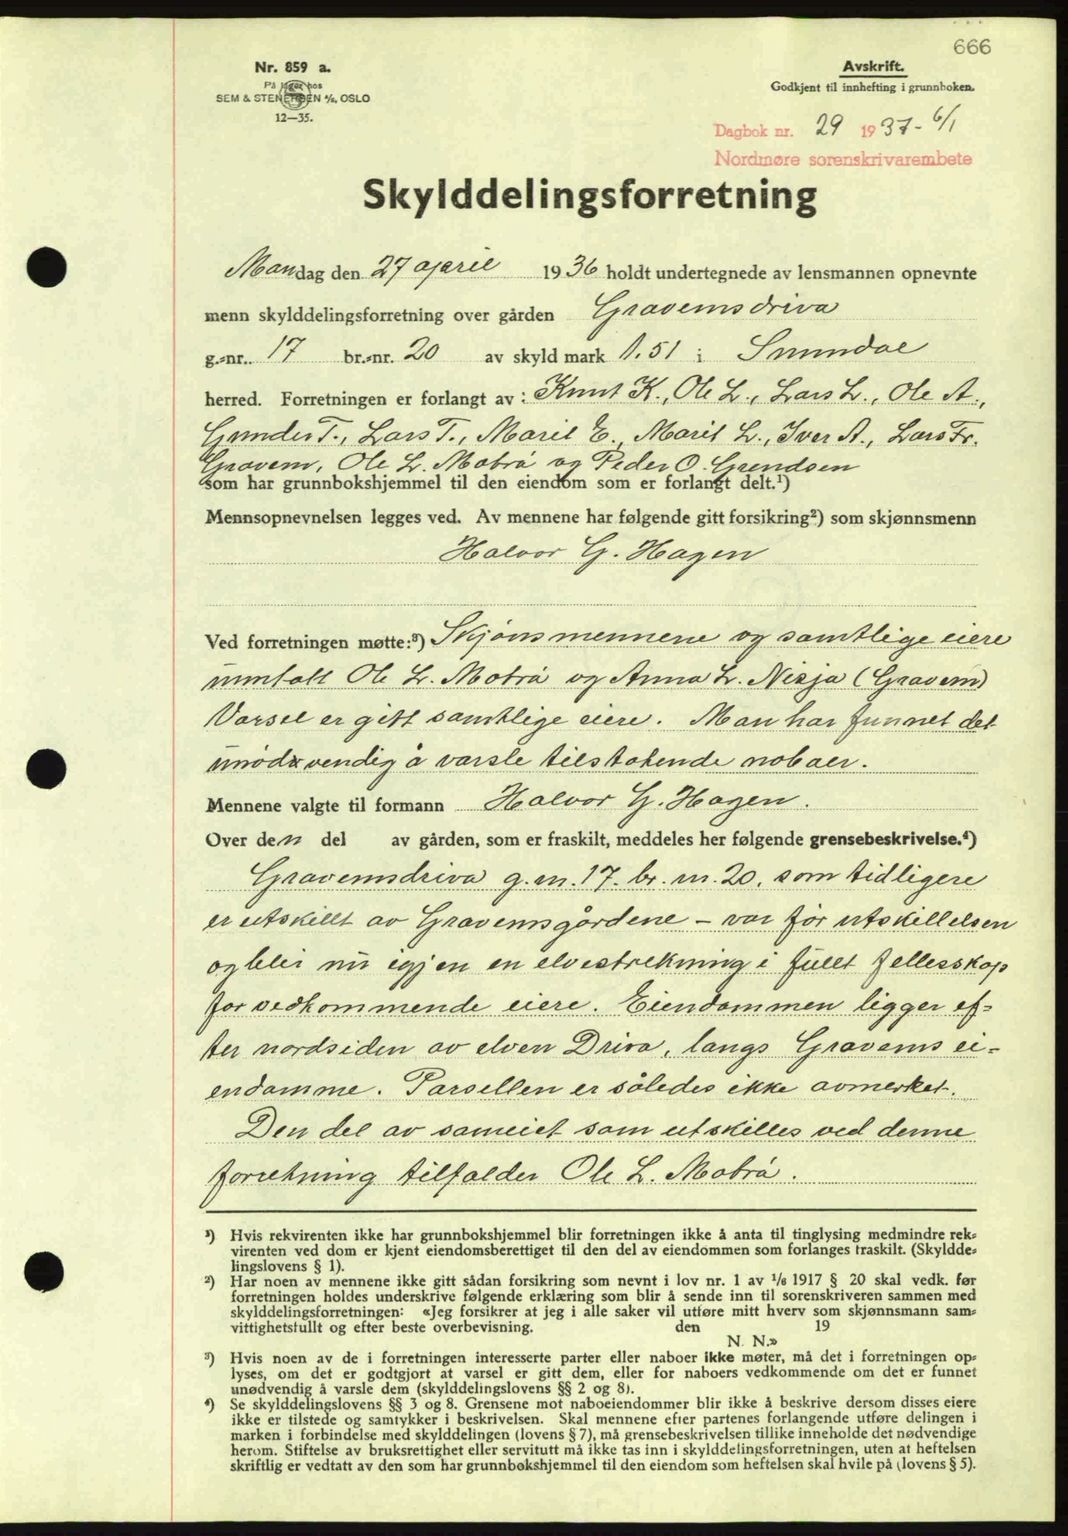 666
Nr. 859 a.
På lager hos
SEM & STENERSEN A/S, OSLO
12—35.
Avskrift.
Godkjent til innhefting i grunnboken.
Dagbok nr. 29 1937 - 6/1
Nordmøre sorenskrivarembete
Skylddelingsforretning
Mandag den 27 april 1936 holdt undertegnede av lensmannen opnevnte
menn skylddelingsforretning over gården Gravemsdriva
g.=nr. 17 br.=nr. 20 av skyld mark 1.51 i Sunndal
herred. Forretningen er forlangt av: Knut K., Ole L., Lars L., Ole A.,
Gunder T., Lars T., Marit E., Marit L., Iver A., Lars Fr.
Gravem, Ole L. Mobrå og Peder O. Grendsen
som har grunnbokshjemmel til den eiendom som er forlangt delt.¹)
Mennsopnevnelsen legges ved. Av mennene har følgende gitt forsikring²) som skjønnsmenn
Halvor G. Hagen
Ved forretningen møtte:³) Skjønsmennene og samtlige eiere
unntatt Ole L. Mobrå og Anna L. Nisja (Gravem)
Varsel er gitt samtlige eiere. Man har funnet det
unødvendig å varsle tilstøtende naboer.
Mennene valgte til formann Halvor G. Hagen.
Over den del av gården, som er fraskilt, meddeles her følgende grensebeskrivelse.⁴)
Gravemsdriva g.nr. 17. br. nr. 20. som tidligere
er utskillt av Gravemsgårdene - var før utskillelsen
og blir nu igjen en elvestrekning i fullt fellesskap
for vedkommende eiere. Eiendommen ligger ef=
ter nordsiden av elven Driva, langs Gravems ei=
endomme. Parsellen er således ikke avmerket.
Den del av sameiet som utskilles ved denne
forretning tilfalder Ole L. Mobrå.
¹) Hvis rekvirenten ikke har grunnbokshjemmel blir forretningen ikke å anta til tinglysing medmindre rek=
virenten ved dom er kjent eiendomsberettiget til den del av eiendommen som forlanges fraskilt. (Skyldde=
lingslovens § 1).
²) Har noen av mennene ikke gitt sådan forsikring som nevnt i lov nr. 1 av 1/6 1917 § 20 skal vedk. før
forretningen holdes underskrive følgende erklæring som blir å sende inn til sorenskriveren sammen med
skylddelingsforretningen: «Jeg forsikrer at jeg i alle saker vil utføre mitt hverv som skjønnsmann sam=
vittighetsfullt og efter beste overbevisning. den 19
N. N.»
³) Hvis noen av de i forretningen interesserte parter eller naboer ikke møter, må det i forretningen op=
lyses, om det er godtgjort at varsel er gitt dem, eller for naboers vedkommende om det er funnet
unødvendig å varsle dem (skylddelingslovens §§ 2 og 8).
⁴) Se skylddelingslovens §§ 3 og 8. Grensene mot naboeiendommer blir ikke å beskrive dersom disses eiere
ikke er tilstede og samtykker i beskrivelsen. Skal mennene efter partenes forlangende utføre delingen i
marken i forbindelse med skylddelingen (lovens § 7), må grensebeskrivelsen tillike inneholde det nødvendige
herom. Stiftelse av bruksrettighet eller servitutt må ikke tas inn i skylddelingsforretningen, uten at heftelsen
skriftlig er vedtatt av den som har grunnbokshjemmel til den eiendom som heftelsen skal hvile på (lovens § 5).